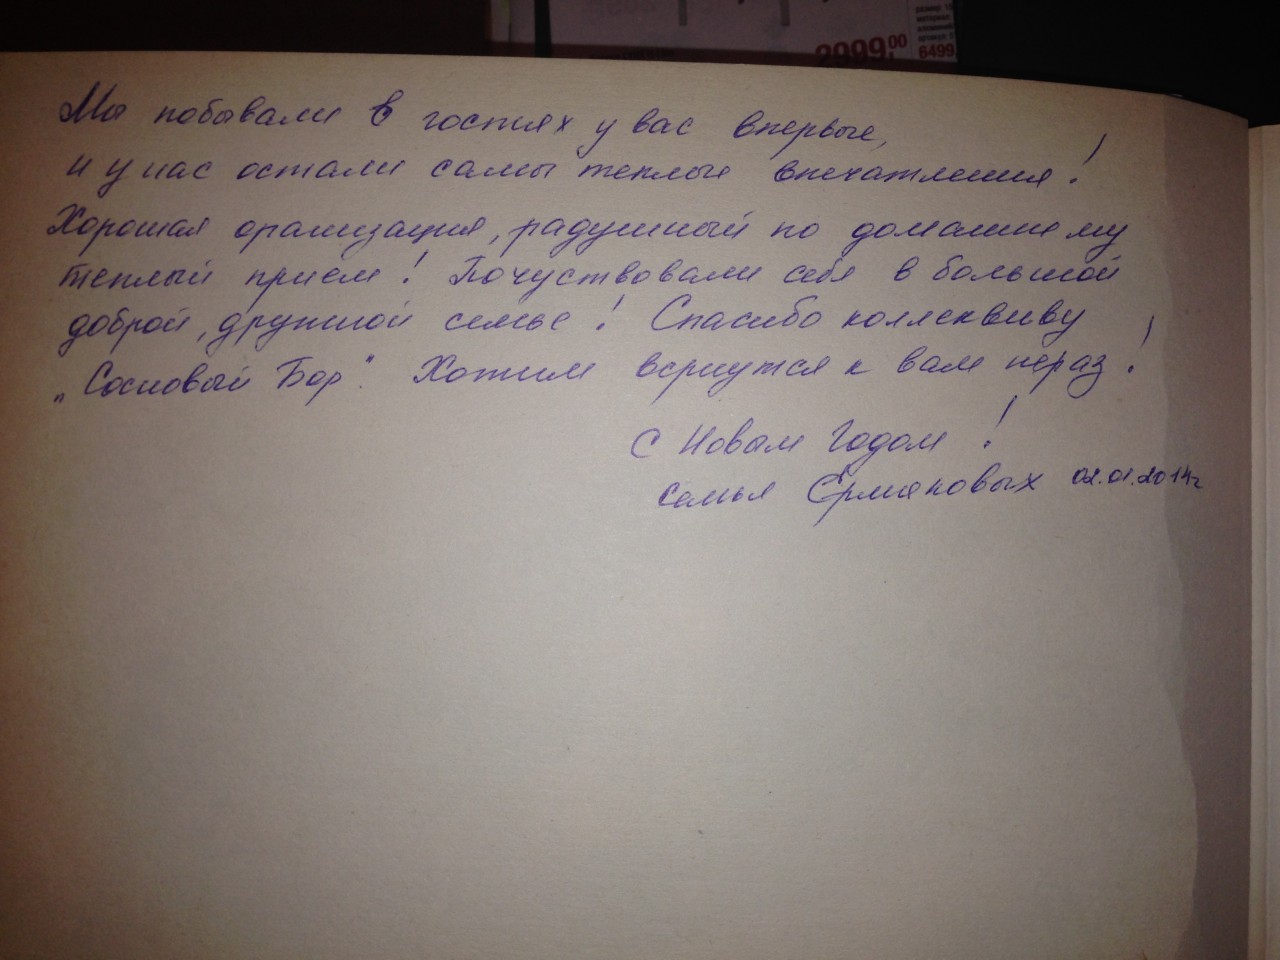 2999,00
размер: 1
материал:
артикул: 5
6499
Мы побывали в гостях у вас впервые,
и у нас остали самы теплые впечатления!
Хорошая орагизация, радушный по домашнему
теплый прием! Почуствовали себя в большой
доброй, дружной семье! Спасибо коллеквиву
„Сосновый Бор". Хотим вернутся к вам нераз!
С Новым Годом!
семья Ермаковых 02.01.2014г